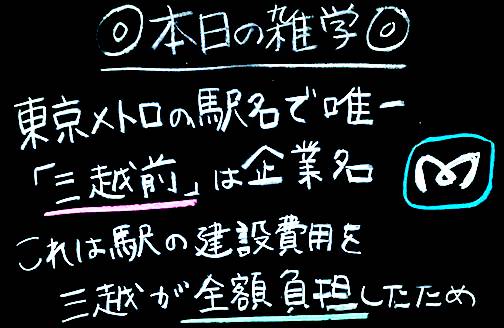 ◎本日の雑学◎
東京メトロの駅名で唯一
「三越前」は企業名
これは駅の建設費用を
三越が全額負担したため